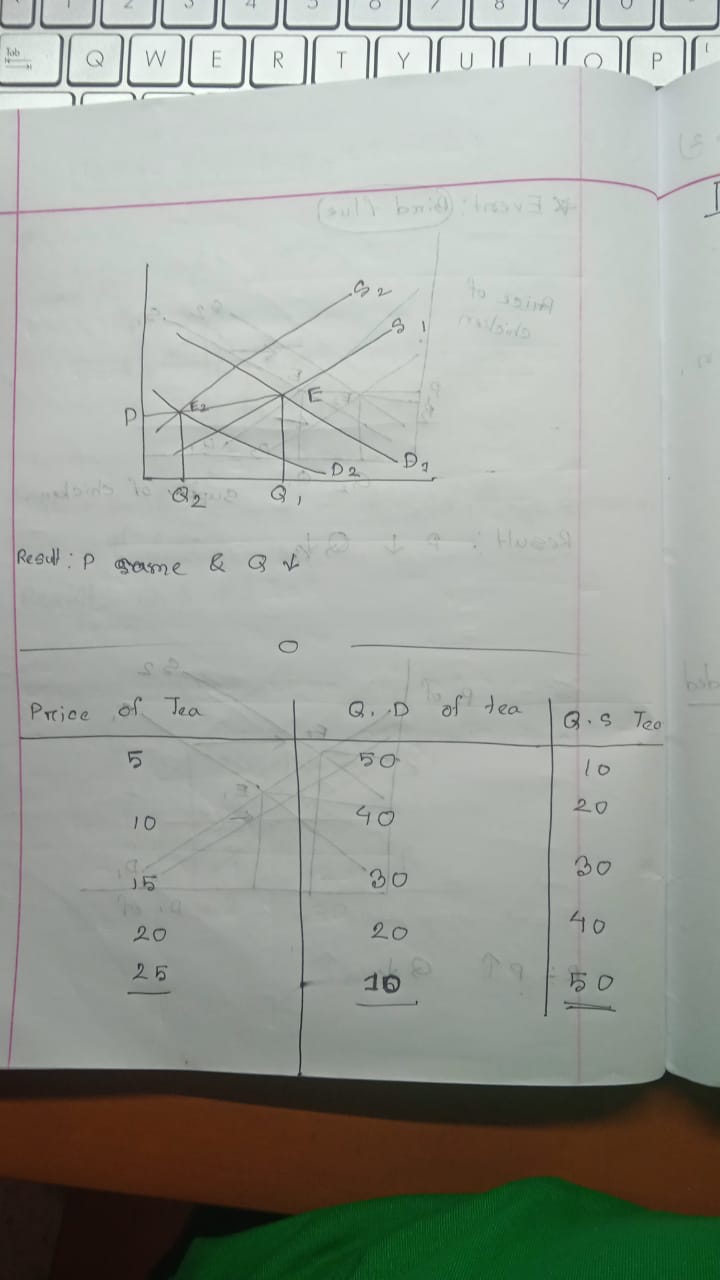 Tab
Q W E R T Y U I O P
S2
S1
E
E2
P
D1
D2
Q2
Q1
Result: P same & Q ↓
Price of Tea Q.D of tea Q.S Tea
5 50 10
10 40 20
15 30 30
20 20 40
25 10 50